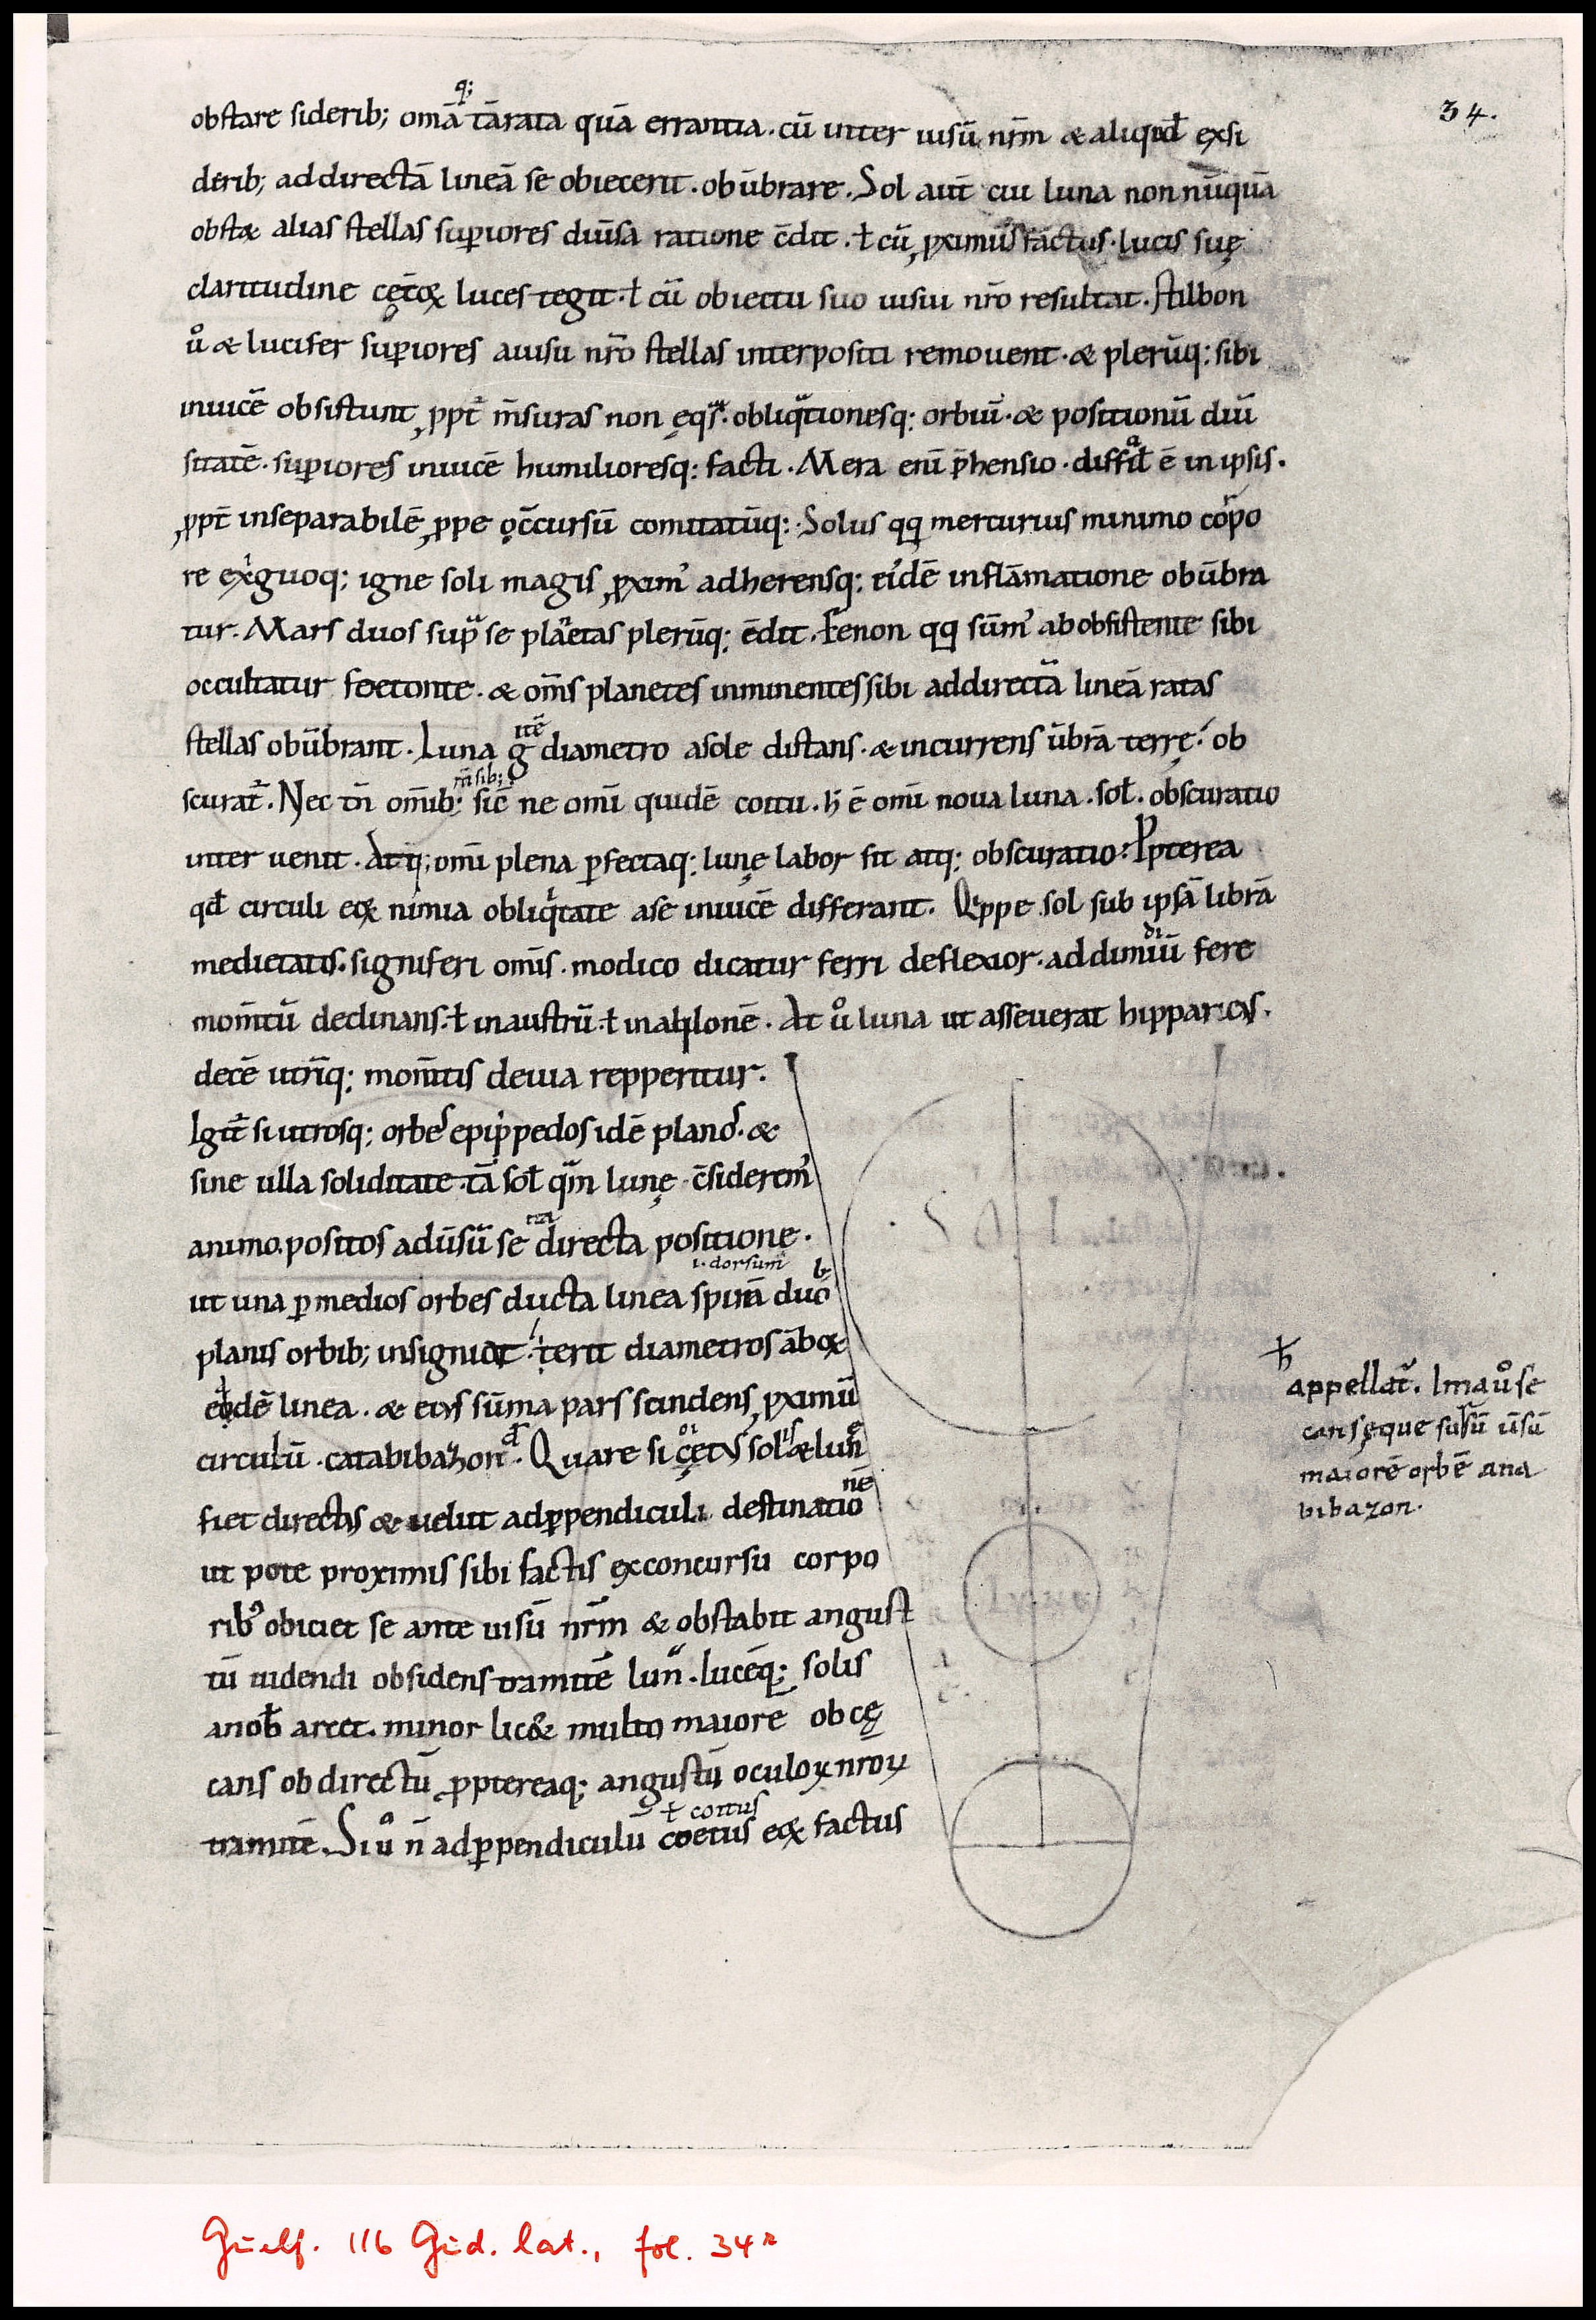 34.
q;
obstare siderib; om̄a tārata quā errantia. cū inter uisū nr̄m & aliquid exsi
derib; addirectā lineā se obiecerit. obūbrare. Sol aut̄ cui luna non nūquā
obstæ alias stellas superiores diuīsa ratione c̄dit. ł cū ꝓximus factus. lucis suę
claritudine cęt̄oꝝ luces tegit. ł cū obiectu suo uisui nr̄o resultat. stilbon
uͦ & lucifer sup̄iores auisu nr̄o stellas interpositi remouent. & plerūq: sibi
inuicē obsistunt ꝓpt̄ m̄suras non ęqͣs. obliqͣtionesq: orbiū. & positionū diū
sitatē. sup̄iores inuicē humilioresq: facti. Mera enī p̄hensio. difficł ē in ipsis.
ꝓpt̄ inseparabilē ꝓpe oc̄cursū comitatūq: Solus qq mercurius minimo corpo
re exiguoq; igne soli magis ꝓximꝰ adherensq: eidē inflāmatione obūbra
tur. Mars duos supͣ se planetas plerūq; c̄dit. Fenon qq sūmꝰ abobsistente sibi
occultatur foetonte. & om̄s planetes inminentes sibi addirectā lineā ratas
itē
stellas obūbrant. Luna g̊ diametro asole distans. & incurrens ūbrā terrę. ob
m̄sib;
scurat̄. Nec tn̄ om̄ib; sic̄ ne omī quidē coitu. h̄ ē omī noua luna. soł. obscuratio
inter uenit. Atq; omī plena ꝑfectaq: lunę labor fit atq; obscuratio. Ppterea
qd̄ circuli eoꝝ nimia obliqͥtate ase inuicē differant. Qͥppe sol sub ipsā librā
di
medietatis. signiferi om̄is. modico dicatur ferri deflexior. addimiū fere
mom̄tū declinans. ł inaustrū. ł inaqͥlonē. At uͦ luna ut asseuerat hipparcͦs.
decē utrīq; mom̄tis deuia repperitur.
Igit̄ si utrosq; orbes epipͥpedos idē planos. &
sine ulla soliditate tā soł qͣm lunę c̄sideremꝰ
na
animo. positos adūsū se directa positione.
i. dorsum
ut una ꝑ medios orbes ducta linea spinā duob
planis orbib; insignior t̄erit diametros āboꝝ
eadē linea. & eiꝰs sūma pars scindens ꝓximū
d
circulū. catabibazon. Quare si cęt̄ꝰs solis & lunę
nē
fiet directꝰs & uelut adꝑpendiculi destinatio
ut pote proximis sibi factis exconcursu corpo
ribꝰ obiciet se ante uisū nr̄m & obstabit angust
tū uidendi obsidens tramitē lunͣ. lucēq; solis
anob̄ arcet. minor lic& multo maiorē ob cę
cans ob directū ꝓptereaq; angustū oculoꝝ nr̄oꝝ
ł coitus
tramitē. Si uͦ n̄ adꝑpendiculū coetus eoꝝ factus
ħ
appellat̄. Ima uͦ se
cans ęque susū ūsū
maiorē orbē ana
bibazon.
SOL
Luna
Guelf. 116 Gud. lat., fol. 34ʳ